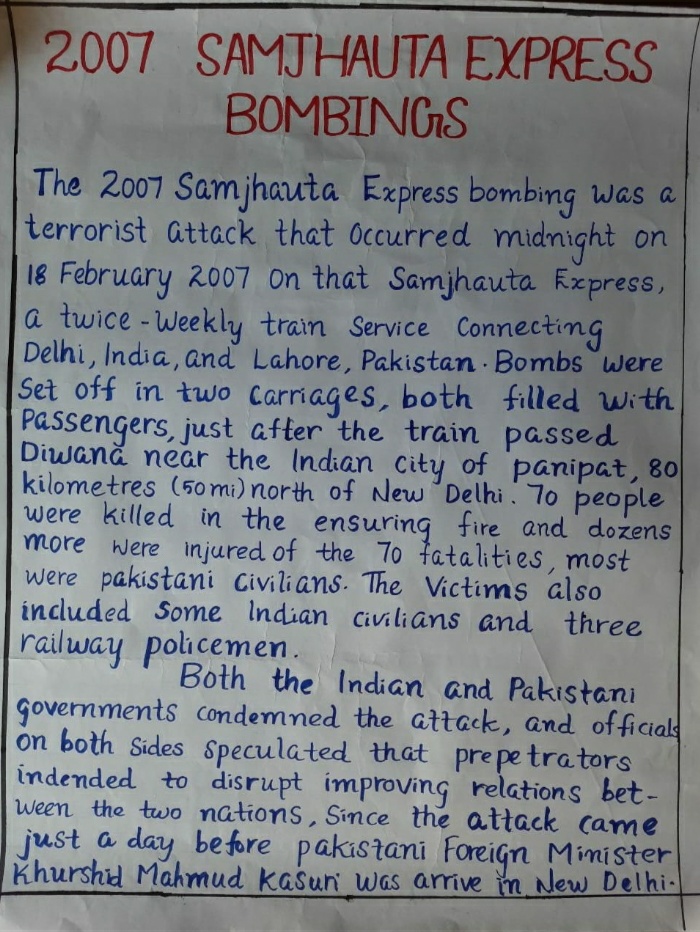 2007 SAMJHAUTA EXPRESS
BOMBINGS
The 2007 Samjhauta Express bombing was a
terrorist attack that occurred midnight on
18 February 2007 on that Samjhauta Express,
a twice-weekly train Service Connecting
Delhi, India, and Lahore, Pakistan. Bombs were
Set off in two Carriages, both filled with
Passengers, just after the train passed
Diwana near the Indian city of panipat, 80
kilometres (50mi) north of New Delhi. 70 people
were killed in the ensuring fire and dozens
more were injured of the 70 fatalities, most
were pakistani civilians. The Victims also
included Some Indian civilians and three
railway policemen.
Both the Indian and Pakistani
governments condemned the attack, and officials
on both Sides Speculated that prepetrators
indended to disrupt improving relations bet-
ween the two nations, Since the attack came
just a day before pakistani Foreign Minister
Khurshid Mahmud Kasuri was arrive in New Delhi.